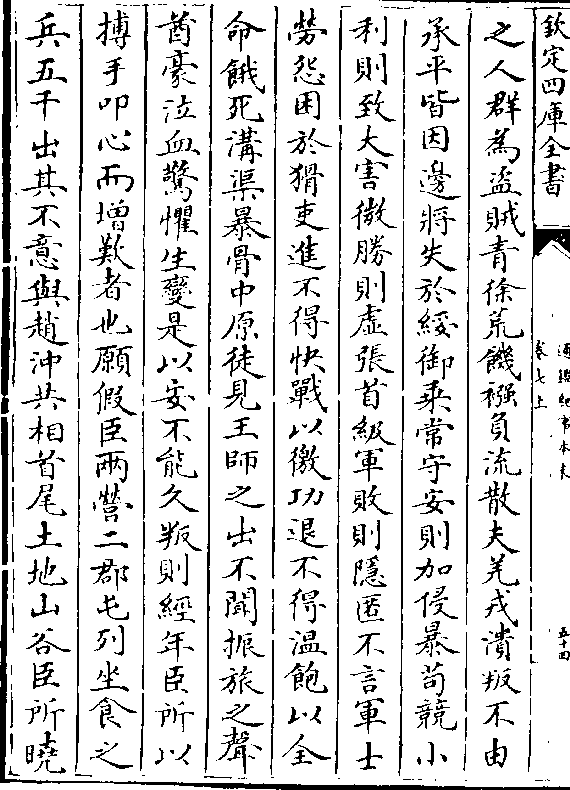 欽定四庫全書
通鑑紀事本末
卷七上
五十四
之人群為盜賊青徐荒饑襁負流散夫羌戎潰叛不由
承平皆因邊將失於綏御乗常守安則加侵暴苟競小
利則致大害微勝則虛張首級軍敗則隱匿不言軍士
勞怨困於猾吏進不得快戰以徼功退不得溫飽以全
命餓死溝渠暴骨中原徒見王師之出不聞振旅之聲
酋豪泣血驚懼生變是以安不能久叛則經年臣所以
搏手叩心而增歎者也願假臣兩營二郡屯列坐食之
兵五千出其不意與趙沖共相首尾土地山谷臣所曉